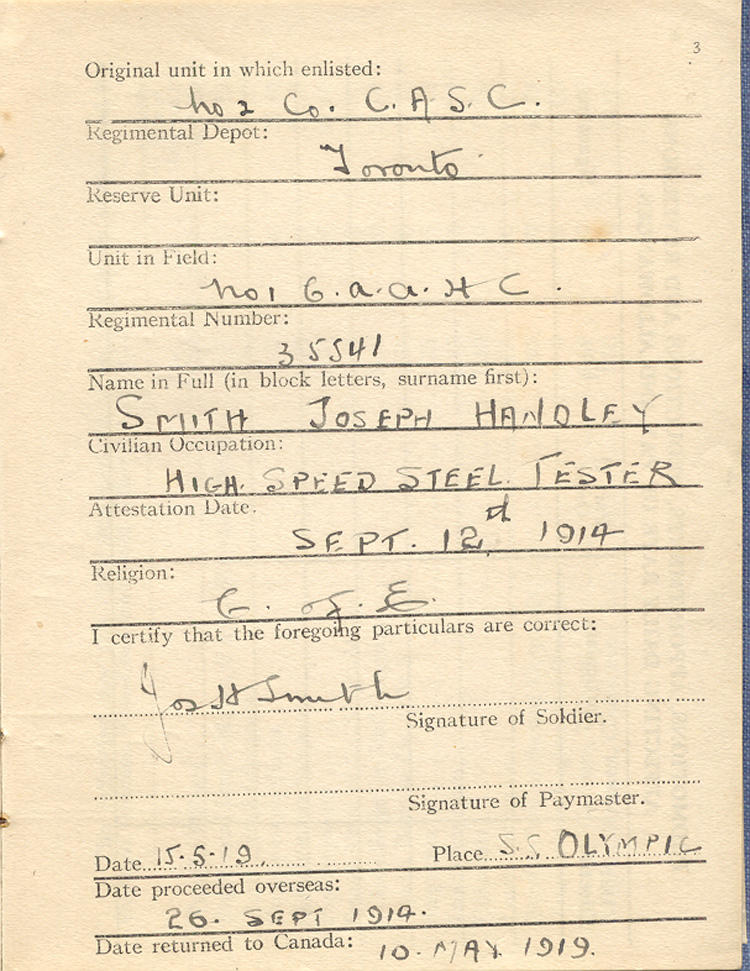 3
Original unit in which enlisted:
No 2 Co. C. A. S. C.
Regimental Depot:
Toronto
Reserve Unit:
Unit in Field:
No 1 C. a. a. H C.
Regimental Number:
35541
Name in Full (in block letters, surname first):
SMITH JOSEPH HANDLEY
Civilian Occupation:
HIGH. SPEED STEEL. TESTER
Attestation Date.
SEPT. 12d 1914
Religion:
C. of E.
I certify that the foregoing particulars are correct:
Jos H Smith
Signature of Soldier.
Signature of Paymaster.
Date 15.5.19. Place S.S. OLYMPIC
Date proceeded overseas:
26. SEPT 1914.
Date returned to Canada: 10. MAY. 1919.